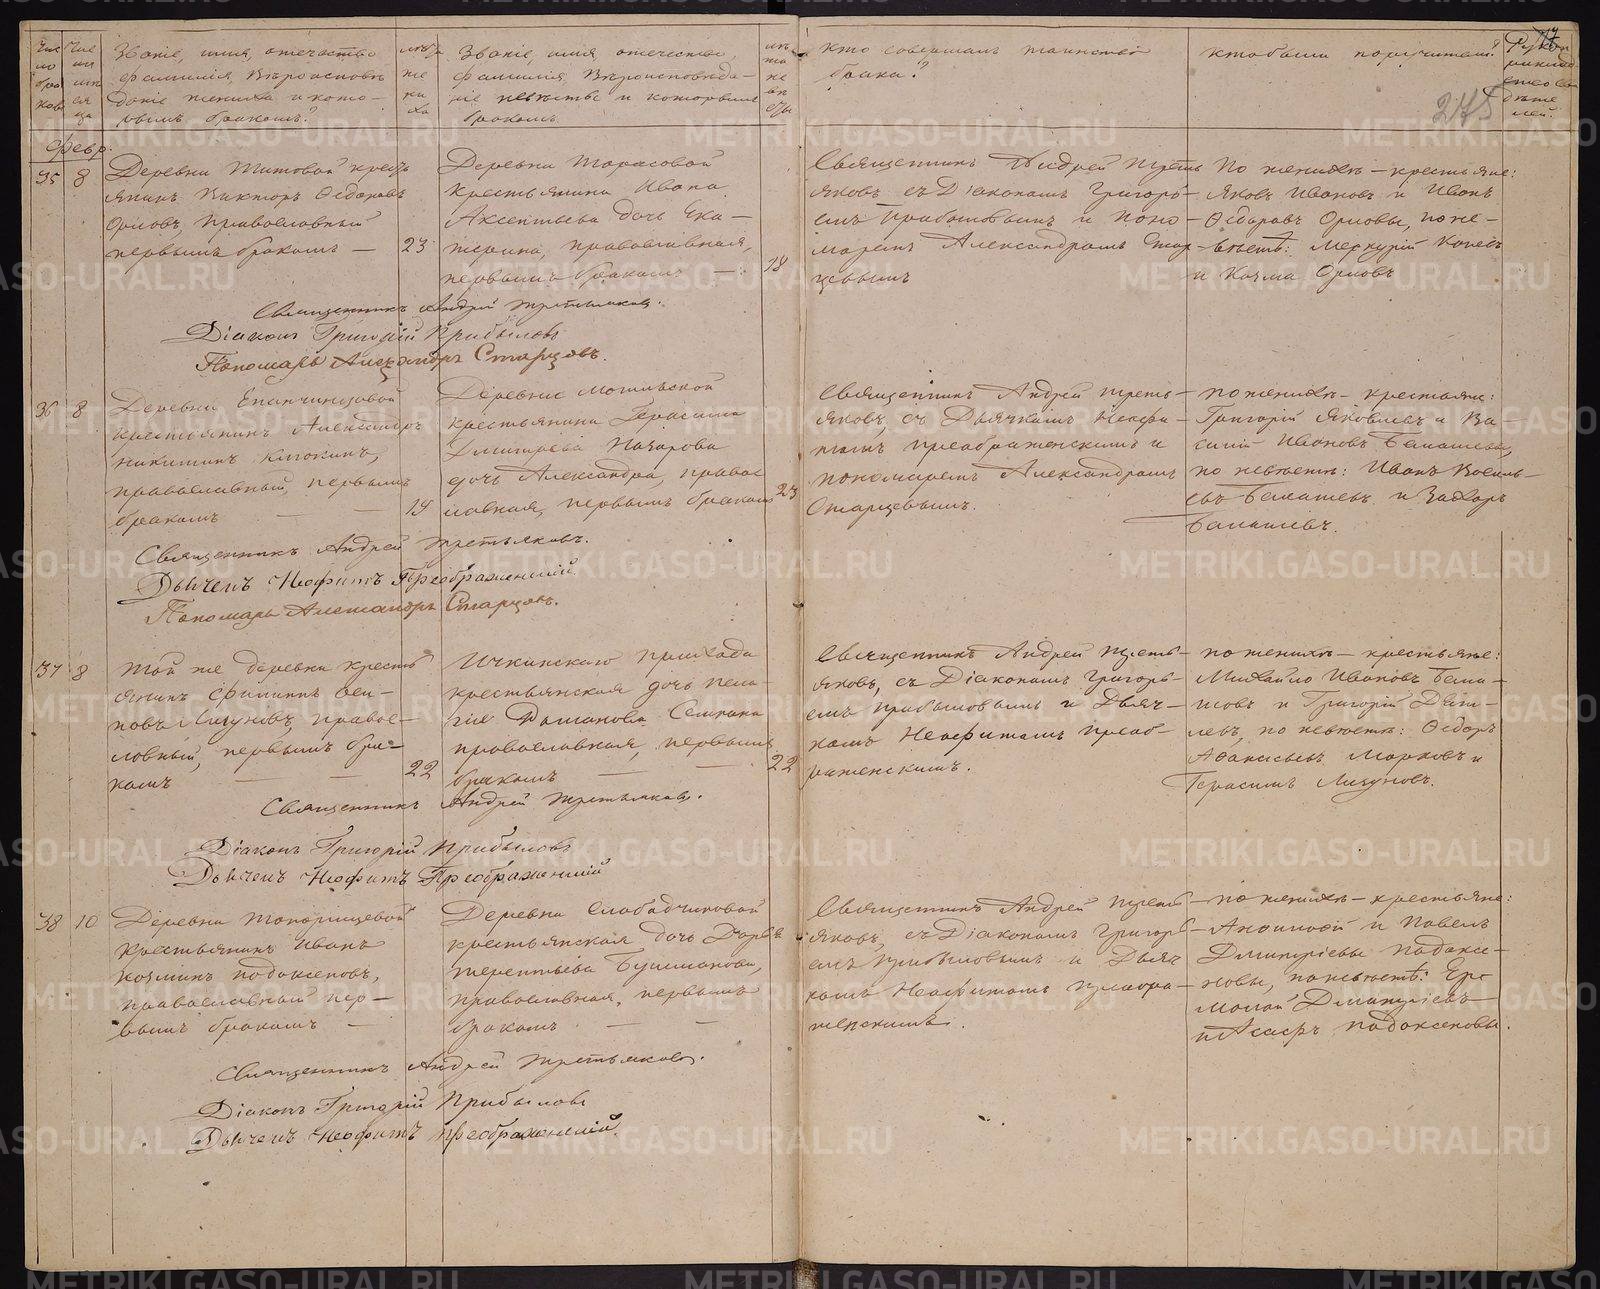 Званіе, имя, отчество
фамилія, вѣроисповѣ
даніе жениха и кото-
рымъ бракомъ?
Званіе, имя, отчество
фамилія, вѣроисповѣда-
ніе невѣсты и которымъ
бракомъ
Кто совершалъ таинство
брака?
Кто были поручители?
275
Февр.
35
8
Деревни Титовой кресть
янинъ Викторъ Ѳедоровъ
Орловъ, православный
первымъ бракомъ —
23
Деревни Тарасовой
крестьянина Ивана
Аксентьева дочь Ека-
терина, православная,
первымъ бракомъ —
18
Священникъ Андрей Треть
яковъ съ Діакономъ Григорь-
емъ Прибыловымъ и поно
маремъ Александромъ Стар
цевымъ
По женихѣ — крестьяне:
Яковъ Ивановъ и Иванъ
Ѳедоровъ Орловы, по не-
вѣстѣ: Меркурій
и Козма Орловъ
Священникъ Андрей Третьяковъ.
Діаконъ Григорій Прибыловъ
Пономарь Александръ Старцовъ.
36
8
Деревни Епанчинцовой
крестьянинъ Александръ
Никитинъ Клюкинъ,
православный, первымъ
бракомъ — —
19
Деревни
крестьянина Герасима
Дмитріева Назарова
дочь Александра, правос
лавная, первымъ бракомъ
23
Священникъ Андрей Треть-
яковъ, съ Дьячкомъ Неофи-
томъ Преображенскимъ и
пономаремъ Александромъ
Старцевымъ.
По женихѣ — крестьяне:
Григорій Яковлевъ и Ва-
силій Ивановъ Балашевы,
по невѣстѣ: Иванъ Василь-
евъ Балашевъ и Захаръ
Балашевъ.
Священникъ Андрей Третьяковъ.
Дьячекъ Неофитъ Преображенскій
Пономарь Александръ Старцовъ.
37
8
Той же деревни кресть
янинъ Филиппъ Оси-
повъ Лизуновъ, правос-
лавный, первымъ бра-
комъ — —
22
Ичкинскаго прихода
крестьянская дочь Пела-
гія
православная, первымъ
бракомъ — —
22
Священникъ Андрей Треть-
яковъ, съ Діакономъ Григорь-
емъ Прибыловымъ и Дьяч-
комъ Неофитомъ Преоб-
раженскимъ.
По женихѣ — крестьяне:
Михайло Ивановъ
и Григорій
по невѣстѣ: Ѳедоръ
Аѳанасьевъ Марковъ и
Герасимъ Лизуновъ.
Священникъ Андрей Третьяковъ.
Діаконъ Григорій Прибыловъ
Дьячекъ Неофитъ Преображенскій
38
10
Деревни Топорищевой
крестьянинъ Иванъ
Козминъ Подоксеновъ,
православный пер-
вымъ бракомъ —
Деревни Слободчиковой
крестьянская дочь Дарья
Терентьева Бушманова,
православная, первымъ
бракомъ — —
Священникъ Андрей Треть
яковъ, съ Діакономъ Григорь
емъ Прибыловымъ и Дьяч
комъ Неофитомъ Преобра-
женскимъ.
По женихѣ — крестьяне:
и Павелъ
Дмитріевы Подоксе-
новы, по невѣстѣ: Ер-
молай Дмитріевъ
и Асафъ Подоксеновы.
Священникъ Андрей Третьяковъ.
Діаконъ Григорій Прибыловъ
Дьячекъ Неофитъ Преображенскій.
METRIKI.GASO-URAL.RU